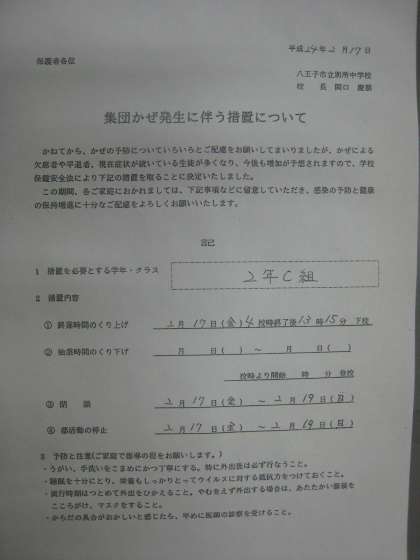 平成24年2月17日
保護者各位
八王子市立別所中学校
校 長 関口
集団かぜ発生に伴う措置について
かねてから、かぜの予防についていろいろとご配慮をお願いしてまいりましたが、かぜによる
欠席者や早退者、現在症状が続いている生徒が多くなり、今後も増加が予想されますので、学校
保健安全法により下記の措置を取ることに決定いたしました。
この期間、各ご家庭におかれましては、下記事項などに留意していただき、感染の予防と健康
の保持増進に十分なご配慮をよろしくお願いいたします。
記
1 措置を必要とする学年・クラス 2年C組
2 措置内容
① 終業時間のくり上げ 2月17日(金)4校時終了後13時15分 下校
② 始業時間のくり下げ 月 日( ) ～ 月 日( )
校時より開始 時 分 登校
③ 閉 鎖 2月17日(金) ～ 2月19日(日)
④ 部活動の停止 2月17日(金) ～ 2月19日(日)
3 予防と注意(ご家庭で指導の程をお願いします。)
・うがい、手洗いをこまめにかつ丁寧にする。特に外出後は必ず行なうこと。
・睡眠を十分にとり、栄養もしっかりとってウイルスに対する抵抗力をつけておくこと。
・流行時期はつとめて外出をひかえること。やむをえず外出する場合は、あたたかい服装を
こころがけ、マスクをすること。
・からだの具合がおかしいと感じたら、早めに医師の診察を受けること。